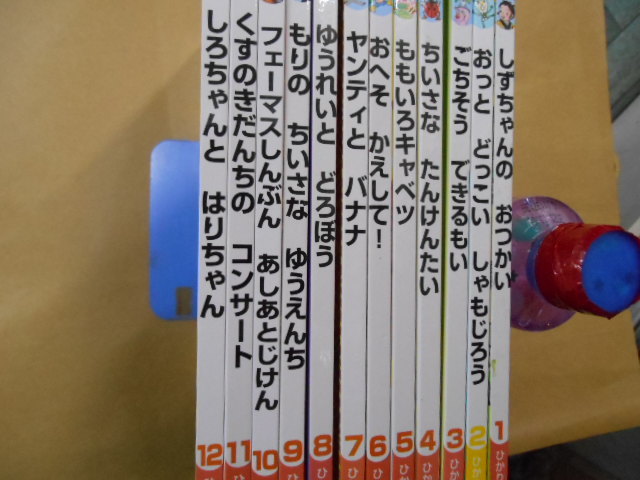 しずちゃんの おつかい
1
ひかり
おっと どっこい しゃもじろう
2
ひか
ごちそう できるもい
3
ひか
ちいさな たんけんたい
4
ひか
ももいろキャベツ
5
ひか
おへそ かえして!
6
ひか
ヤンティと バナナ
7
ひか
ゆうれいと どろぼう
8
ひ
もりの ちいさな ゆうえんち
9
ひか
フェーマスしんぶん あしあとじけん
10
くすのきだんちの コンサート
11
ひ
しろちゃんと はりちゃん
12